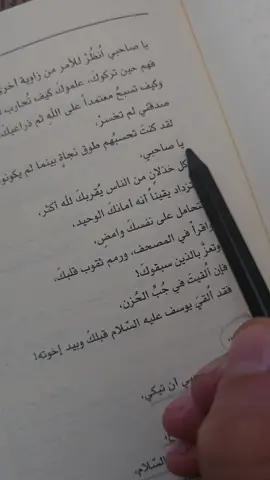 يا صاحبي أُنظُرْ للأمر من زاوية أخرى
فهم حين تركوكَ، علموكَ كيف تُحارب
وكيف تسبحُ معتمداً على اللهِ ثم ذراعيكَ
صدقني لم تخسرْ
لقد كنتَ تحسبُهم طوق نجاةٍ بينما لم يكونوا
يا صاحبي،
كل خذلانٍ من الناس يُقربكَ لله أكثر،
تزداد يقيناً أنه أمانكَ الوحيد،
تحامل على نفسكَ وامضِ،
اقرأ في المصحف، ورمم ثقوب قلبكَ،
وتعزَّ بالذين سبقوكَ!
فإن أُلقيتَ في جُبِّ الحُزن،
فقد أُلقيَ يوسف عليه السّلام قبلكَ وبيد إخوته!
أن تبكي،
السّلام،